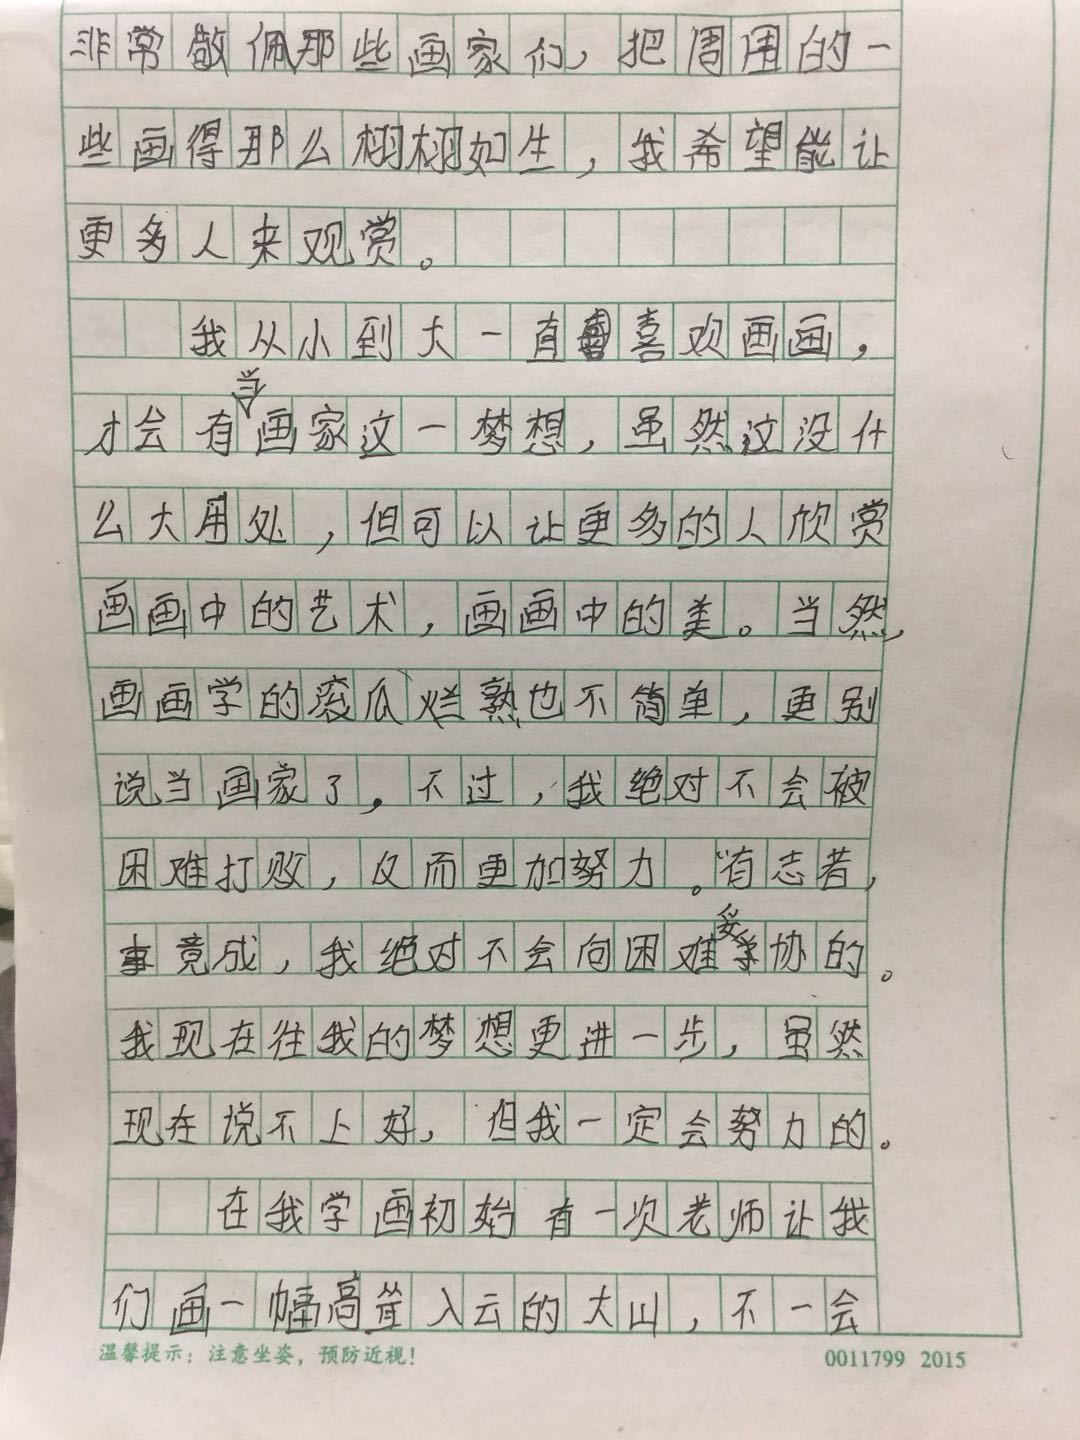 非常敬佩那些画家们，把周围的一
些画得那么栩栩如生，我希望能让
更多人来观赏。
我从小到大一直喜欢画画，
才会有当画家这一梦想，虽然这没什
么大用处，但可以让更多的人欣赏
画画中的艺术，画画中的美。当然，
画画学的滚瓜烂熟也不简单，更别
说当画家了，不过，我绝对不会被
困难打败，反而更加努力。“有志者，
事竟成，我绝对不会向困难妥协的。
我现在往我的梦想更进一步，虽然
现在说不上好，但我一定会努力的。
在我学画初始有一次老师让我
们画一幅高耸入云的大山，不一会
温馨提示：注意坐姿，预防近视！ 0011799 2015